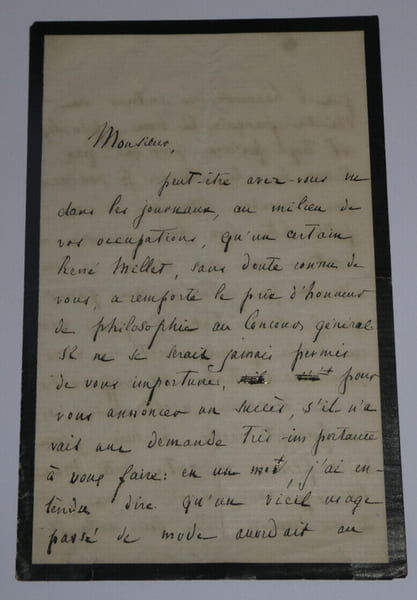 Monsieur,
peut-être avez-vous vu
dans les journaux, au milieu de
vos occupations, qu'un certain
René Millet, sans doute connu de
vous, a remporté le prix d'honneur
de philosophie au Concours général
Il ne se serait jamais permis
de vous importuner, pour
vous annoncer un succès, s'il n'a
vait une demande très-importante
à vous faire: en un mot, j'ai en-
tendu dire qu'un vieil usage
passé de mode accordait au